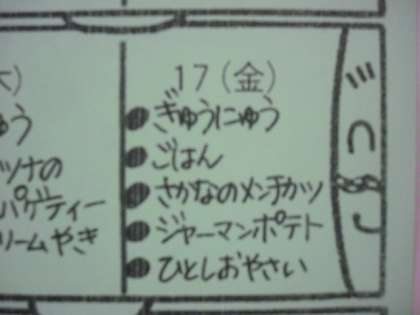 17(金)
ぎゅうにゅう
ごはん
さかなのメンチカツ
ジャーマンポテト
ひとしおやさい
木)
ゅう
ツナの
パゲティー
リームやき